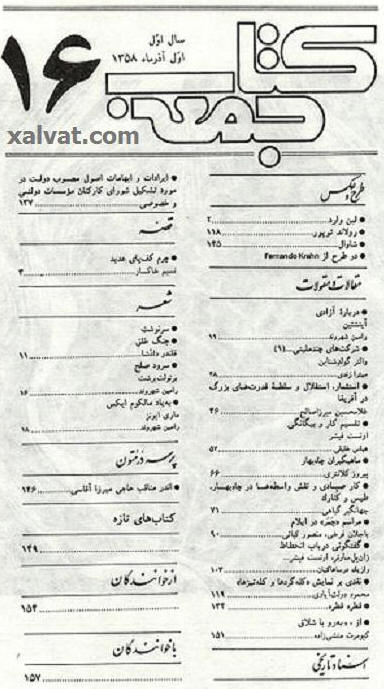 کتاب جمعه
سال اوّل
اول آذرماه ۱۳۵۸
۱۶
xalvat.com
طرح و عکس
● لین وارد ................ ۲
● رولاند توپور ................ ۱۱۸
● شاوال ................ ۱۴۵
● دو طرح از Fernando Krahn
مقالات و مقولات
● دربارهٔ آزادی
آینشتین
رامین شهروند ................ ۹۹
● شرکت‌های چندملیتی...(۹)
والتر گولدشتاین
میترا زندی ................ ۲۸
● استعمار، استقلال و سلطهٔ قدرت‌های بزرگ
در آفریقا
غلامحسین میرزاصالح ................ ۴۶
● تقسیم کار و بیگانگی
ارنست فیشر
................ ۵۲
● ماهیگیران چابهار
پیروز کلانتری ................ ۶۶
● کار صیادی و نقش واسطه‌ها در چابهار،
طیس و کنارک
................ ۷۱
● مراسم «چمر» در ایلام
باجلان فرخی، منصور کیائی ................ ۹۰
● گفتگوئی درباب انحطاط
ژان‌پل‌سارتر، ارنست فیشر...
................ ۱۰۲
● نقدی بر نمایش «کله‌گردها و کله‌تیزها»
محمود دولت‌آبادی ................ ۱۱۹
● قطره قطره ................ ۱۳۴
● از «به‌رو با شلاق
کیومرث منشی‌زاده ................ ۱۵۱
اسناد تاریخی
● ایرادات و ابهامات اصول مصوب دولت در
مورد تشکیل شورای کارکنان مؤسسات دولتی
و خصوصی ................ ۱۳۷
قصه
● چرم کف‌پای هدید
نسیم خاکسار ................ ۳
شعر
● سرنوشت
● جنگ خلق
................ ۱۱
● سرود صلح
برتولت‌برشت
رامین شهروند ................ ۱۶
● به‌یاد مالکوم ایکس
ماری ایونز
رامین شهروند ................ ۱۸
پرسه در متون
● اندر مناقب حاجی میرزا آقاسی ................ ۱۴۶
کتاب‌های تازه
................ ۱۴۹
از خوانندگان
................ ۱۵۴
با خوانندگان
................ ۱۵۷